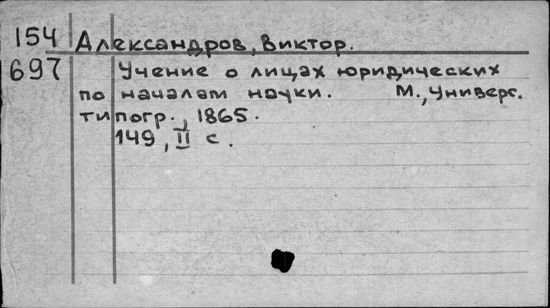 154 Александров, Виктор.
697 Учение о лицах юридических
по началам науки. М., Универс.
типогр., 1865.
149, II с.